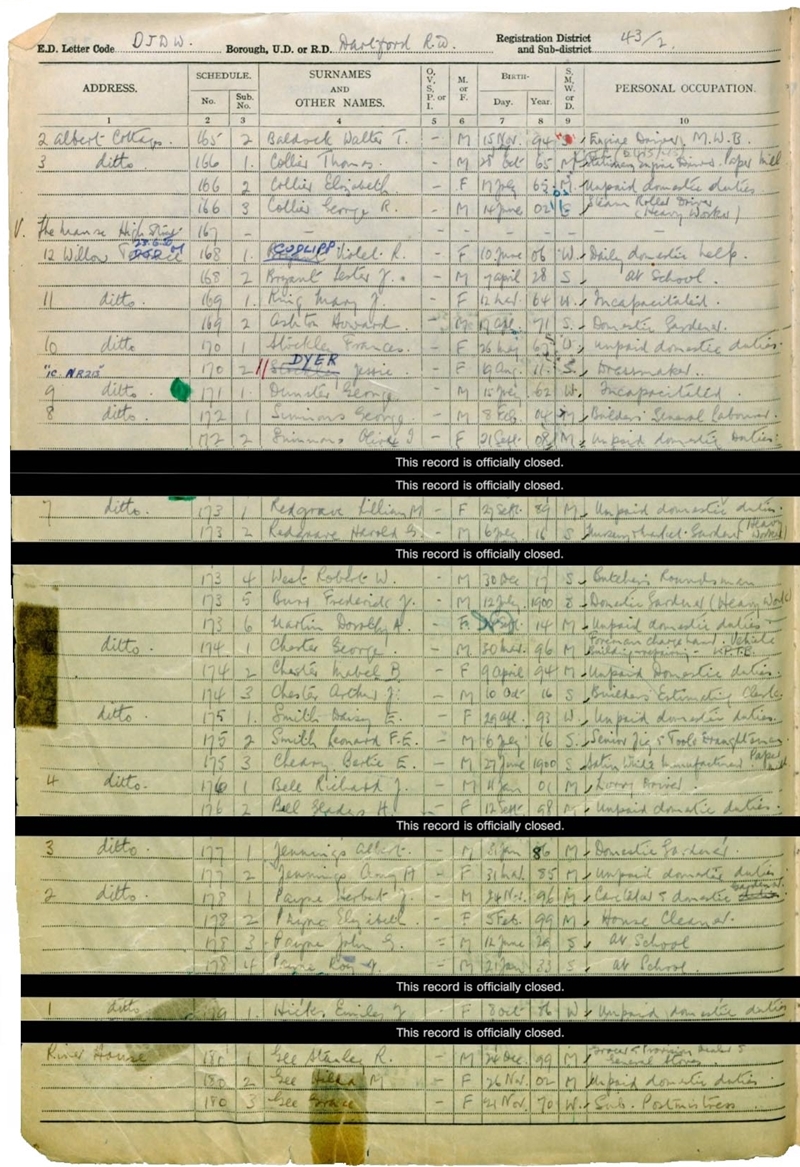 E.D. Letter Code DJDW. Borough, U.D. or R.D. Dartford R.D. Registration District and Sub-district 43/2.
ADDRESS. SCHEDULE. SURNAMES AND OTHER NAMES. O, V, S, P, or I. M. or F. BIRTH— S, M, W, or D. PERSONAL OCCUPATION.
No. Sub. No. Day. Year.
1 2 3 4 5 6 7 8 9 10
2 Albert Cottages. 165 2 Baldock Walter T. - M 15 Nov. 94 Engine Driver, M.W.B.
3 ditto 166 1. Collier Thomas. - M 28 Oct 65 M Stationary Engine Driver Paper Mill
166 2 Collier Elizabeth. - F 17 July 63 M Unpaid domestic duties
166 3 Collier George R. - M 14 June 02 Steam Roller Driver (Heavy Worker)
V. The Manse High Street 167 - - - - - -
12 Willow 168 1. CUDLIPP Violet R. - F 10 June 06 W. Daily domestic help.
168 2 Bryant Lester J. - M 7 April 28 S At School.
11 ditto 169 1 King Mary J. - F 12 Mar. 64 W. Incapacitated.
169 2 Ashton Howard - M 17 Apl. 71 S. Domestic Gardener.
10 ditto 170 1 Stockley Frances. - F 26 W. Unpaid domestic duties.
170 2 DYER Jessie. - F 19 Aug. 11 S. Dressmaker.
9 ditto 171 1. Dunster George - M 15 62 W. Incapacitated.
8 ditto 172 1 Simmons George. - M 8 Feb. 04 M Builders' General Labourer.
172 2 Simmons Olive I - F 21 Sept. 08 M Unpaid domestic Duties.
This record is officially closed.
This record is officially closed.
7 ditto. 173 1 Redgrave Lillian M - F 27 Sept. 89 M. Unpaid domestic duties.
173 2 Redgrave Harold G. - M 6 16 S Gardener (Heavy Worker)
This record is officially closed.
173 4 West Robert W. - M 30 Dec 17 S. Butcher's Roundsman
173 5 Burr Frederick J. - M 12 July 1900 S Domestic Gardener (Heavy Work)
173 6 Martin Dorothy A. - F. Sept. 14 M Unpaid domestic duties
ditto. 174 1 Chester George. - M 30 Mar. 96 M. Foreman charge hand. Vehicle Building & repairing - L.P.T.B.
174 2 Chester Mabel B - F 9 April 94 M Unpaid Domestic duties.
174 3 Chester Arthur J. - M 10 Oct 16 S Builders Estimating Clerk
ditto. 175 1. Smith Daisy E. - F 29 Apl. 93 W. Unpaid domestic duties.
175 2 Smith Leonard F.E. - M 6 July 16 S. Senior Jig & Tools Draughtsman.
175 3 Cleary Bertie E. - M 27 June 1900 S Satin White Manufacturer Paper Mill.
4 ditto. 176 1 Bell Richard J. - M Jan 01 M Lorry Driver.
176 2 Bell Gladys H. - F 12 Sept. 98 M Unpaid domestic duties.
This record is officially closed.
3 ditto 177 1 Jennings Albert. - M Jan 86 M Domestic Gardener.
177 2 Jennings Amy A - F 31 Mar. 85 M Unpaid domestic duties
2 ditto 178 1 Payne Herbert J. - M 24 Nov. 96 M Caretaker & domestic Gardener
178 2 Payne Elizabeth - F 5 Feb. 99 M House Cleaner.
178 3 Payne John G. - M 12 June 29 S At School
178 4 Payne Roy - M 21 Jan 33 S At School.
This record is officially closed.
1 ditto 179 1. Hicks Emily J - F 8 Oct 86 W Unpaid domestic duties
This record is officially closed.
River House 180 1 Gee Stanley R. - M 24 Dec. 99 M Grocer & Provision Dealer & General Stores.
180 2 Gee Hilda M - F 26 Nov. 02 M Unpaid domestic duties
180 3 Gee Grace - F 21 Nov. 70 W. Sub. Postmistress